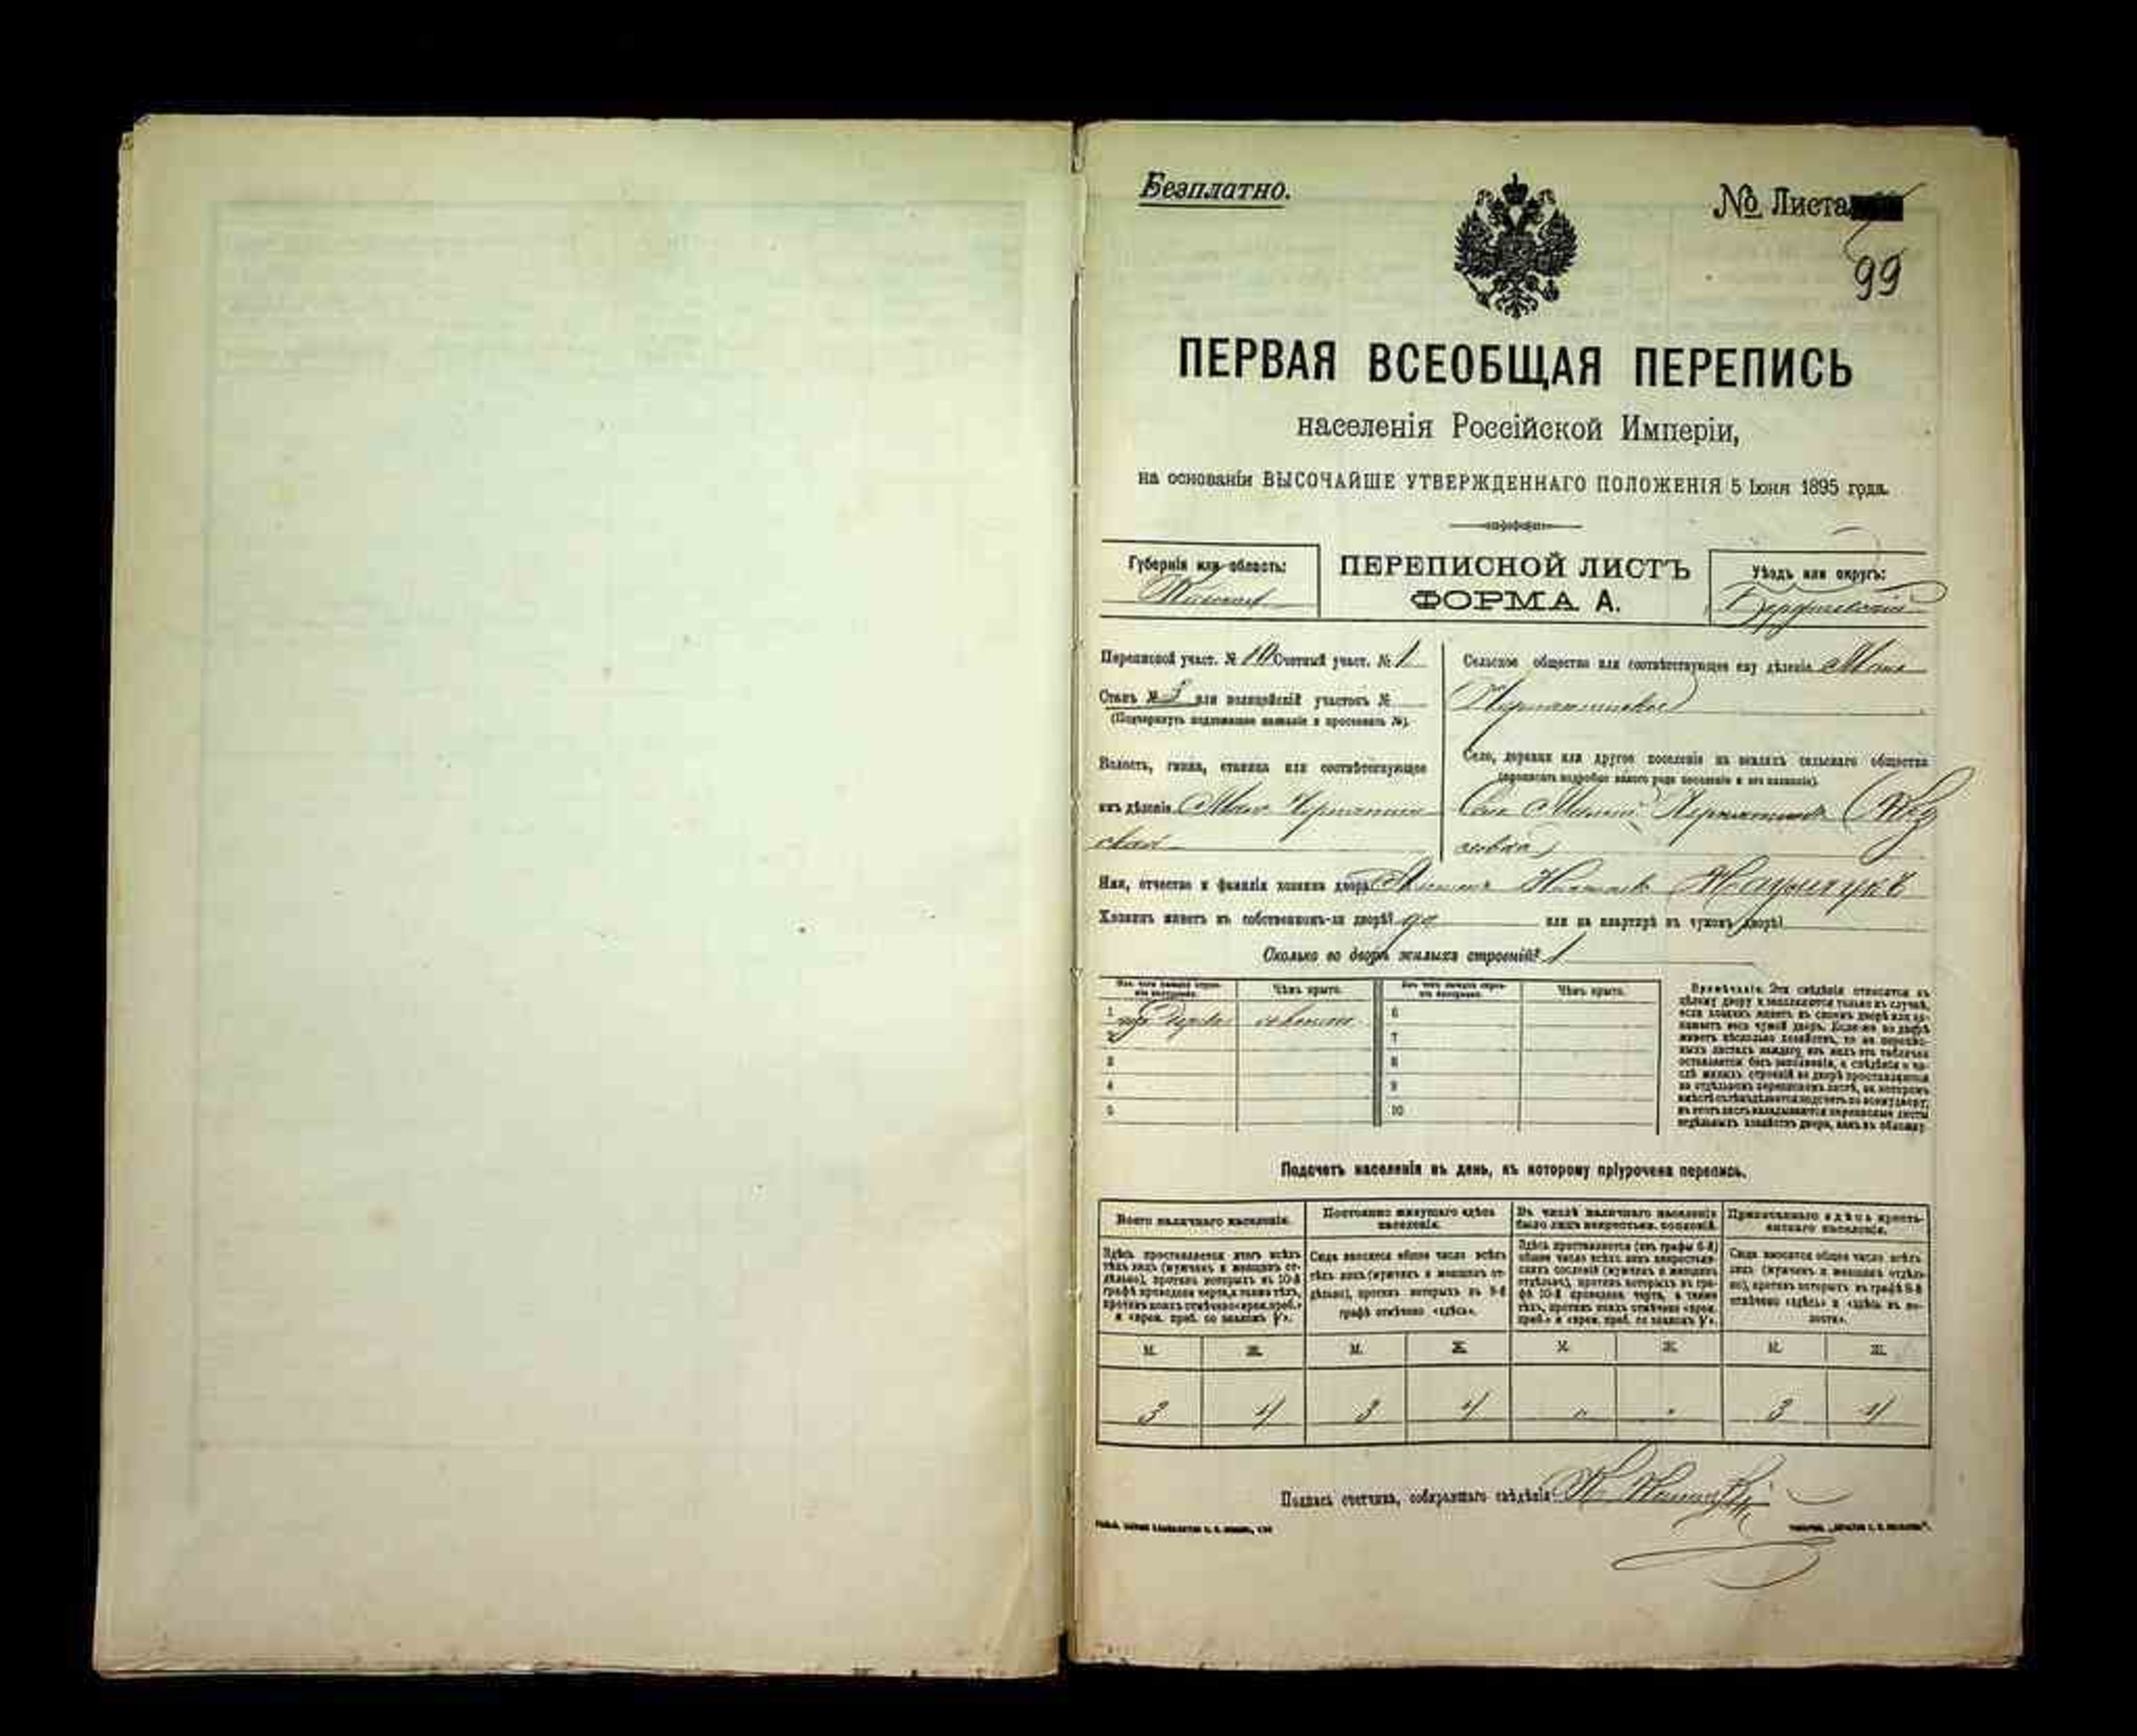 Безплатно.
№ Листа
99
ПЕРВАЯ ВСЕОБЩАЯ ПЕРЕПИСЬ
населенія Россійской Имперіи,
на основаніи ВЫСОЧАЙШЕ УТВЕРЖДЕННАГО ПОЛОЖЕНІЯ 5 Іюня 1895 года.
Губернія или область:
ПЕРЕПИСНОЙ ЛИСТЪ
ФОРМА А.
Уѣздъ или округъ:
Бердичевскій
Переписной участ. № 10 Счетный участ. № 1
Станъ № или полицейскій участокъ №
(Подчеркнуть подлежащее названіе и проставить №).
Волость, гмина, станица или соотвѣтствующее
имъ дѣленіе Мало
ская
Сельское общество или соотвѣтствующее ему дѣленіе Мало
Село, деревня или другое поселеніе на земляхъ сельскаго общества
(прописать подробно какого рода поселеніе и его названіе).
Село
Имя, отчество и фамилія хозяина двора
Хозяинъ живетъ въ собственномъ-ли дворѣ? да или на квартирѣ въ чужомъ дворѣ?
Сколько во дворѣ жилыхъ строеній? 1
Изъ чего каждое строеніе выстроено.
Чѣмъ крыто.
Изъ чего каждое строеніе выстроено.
Чѣмъ крыто.
1 изъ дерева соломою
2
3
4
5
6
7
8
9
10
Примѣчаніе. Эти свѣдѣнія относятся къ
цѣлому двору и заполняются только въ случаѣ,
если хозяинъ живетъ въ своемъ дворѣ или за-
нимаетъ весь чужой дворъ. Если-же во дворѣ
живетъ нѣсколько хозяйствъ, то на перепис-
ныхъ листахъ каждаго изъ нихъ эта табличка
оставляется безъ заполненія, а свѣдѣнія о чи-
слѣ жилыхъ строеній во дворѣ проставляются
на отдѣльномъ переписномъ листѣ, на которомъ
вмѣстѣ съ тѣмъ дѣлается подсчетъ по всему двору;
въ этотъ листъ вкладываются переписные листы
отдѣльныхъ хозяйствъ двора, какъ въ обложку.
Подсчетъ населенія въ день, къ которому пріурочена перепись.
Всего наличнаго населенія.
Здѣсь проставляется итогъ всѣхъ
тѣхъ лицъ (мужчинъ и женщинъ от-
дѣльно), противъ которыхъ въ 10-й
графѣ проведена черта, а также тѣхъ,
противъ коихъ отмѣчено «врем. преб.»
и «врем. преб. со знакомъ V».
Постоянно живущаго здѣсь
населенія.
Сюда вносится общее число всѣхъ
тѣхъ лицъ (мужчинъ и женщинъ от-
дѣльно), противъ которыхъ въ 9-й
графѣ отмѣчено «здѣсь».
Въ числѣ наличнаго населенія
было лицъ некрестьян. сословій.
Здѣсь проставляется (изъ графы 6-й)
общее число всѣхъ лицъ некрестьян-
скихъ сословій (мужчинъ и женщинъ
отдѣльно), противъ которыхъ въ гра-
фѣ 10-й проведена черта, а также
тѣхъ, противъ коихъ отмѣчено «врем.
преб.» и «врем. преб. со знакомъ V».
Приписаннаго здѣсь кресть-
янскаго населенія.
Сюда вносится общее число всѣхъ
лицъ (мужчинъ и женщинъ отдѣль-
но), противъ которыхъ въ графѣ 8-й
отмѣчено «здѣсь» и «здѣсь въ во-
лости».
М. Ж. М. Ж. М. Ж. М. Ж.
3 4 3 4 " " 3 4
Подпись счетчика, собиравшаго свѣдѣнія